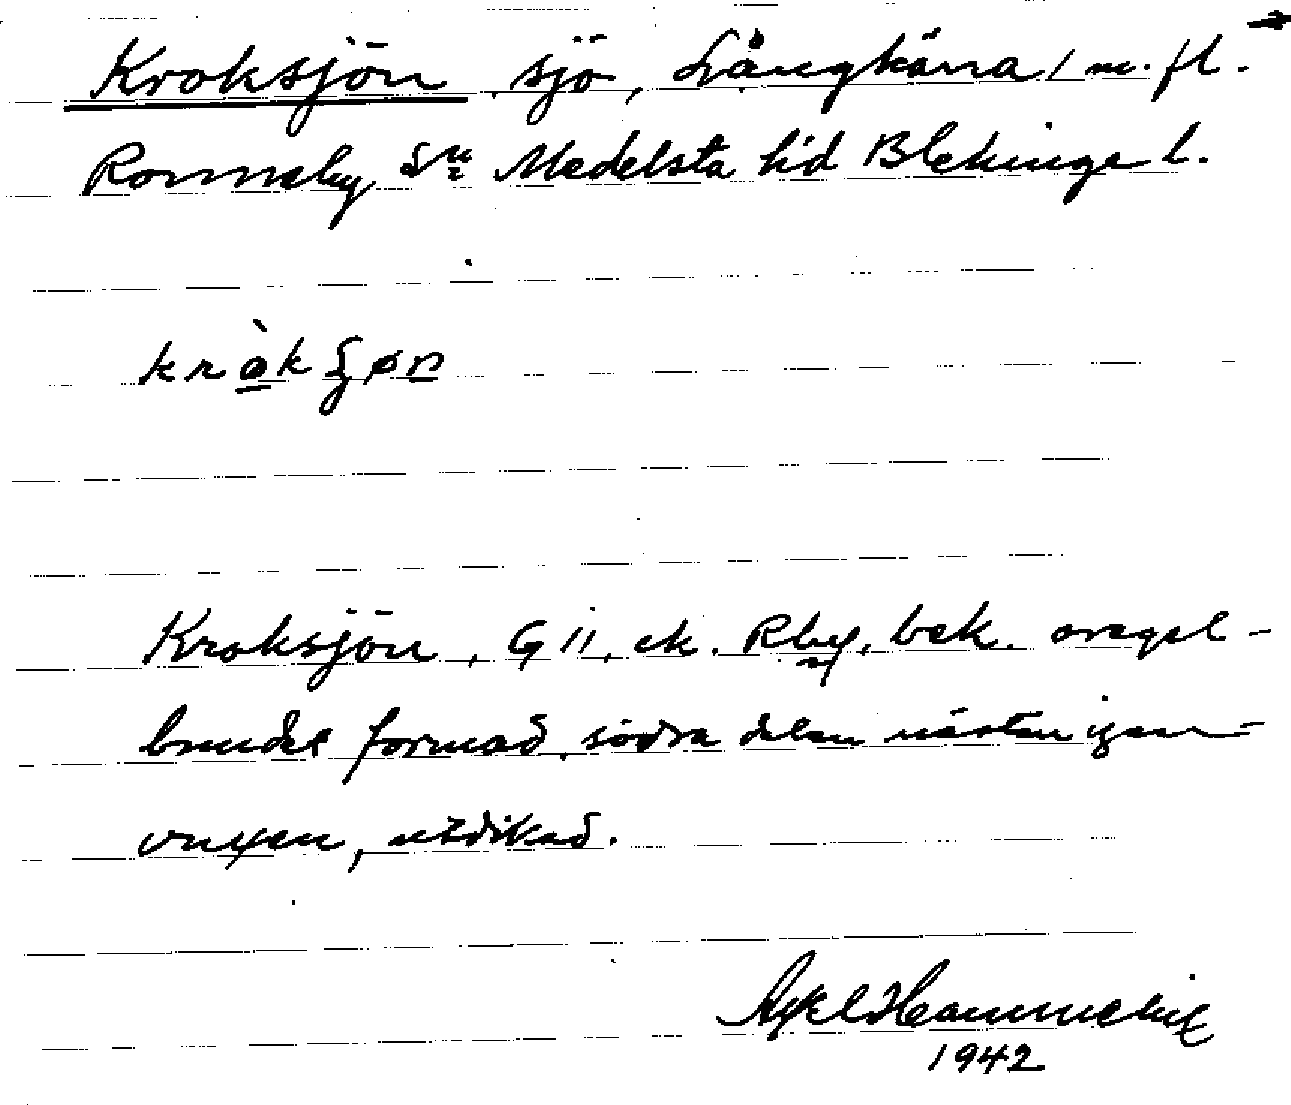 Kroksjön, sjö, Långkärra 1 m.fl. →
Ronneby sn Medelsta hd Blekinge l.
Kroksjön, G 11, ek. Rby, bek. oregel-
bundet formad, södra delen nästan igen-
vuxen, utdikad.
1942